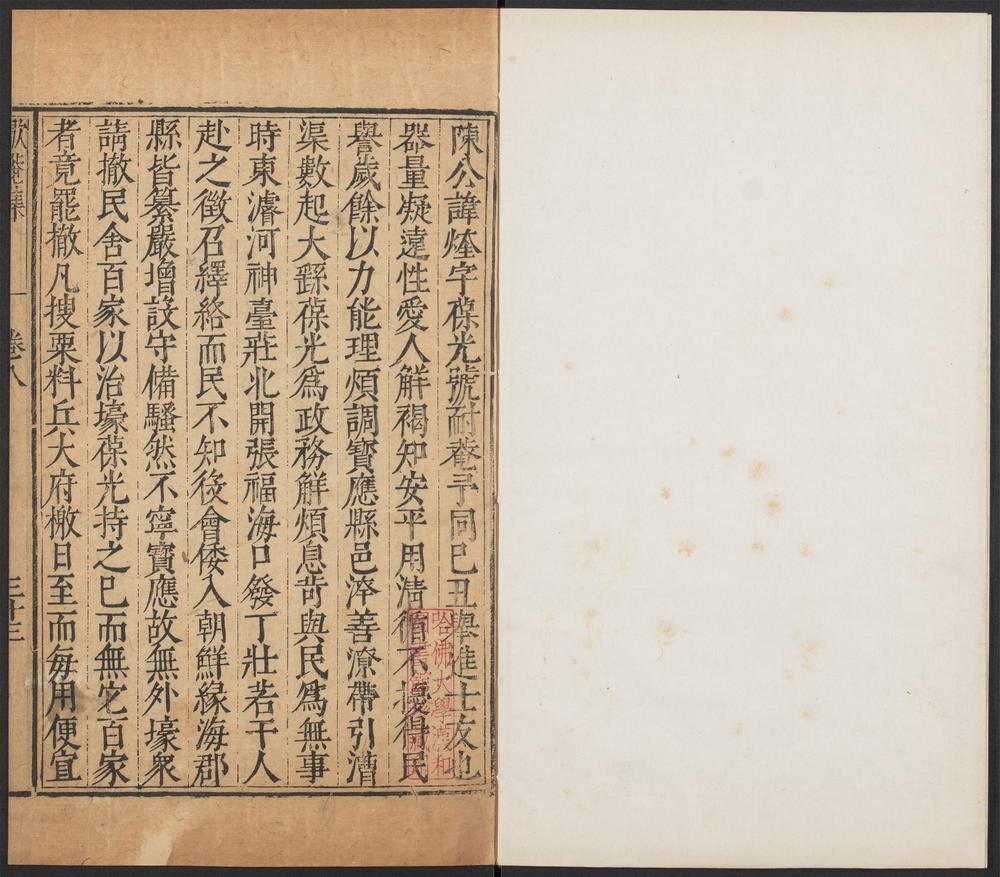 陳公諱煃字葆光號耐菴予同己丑舉進士友也
器量凝遠性愛人解褐知安平用清循不擾得民
譽歲餘以力能理煩調寶應縣邑滓善潦帶引漕
渠數起大繇葆光爲政務解煩息苛與民爲無事
時東濬河神臺莊北開張福海口發丁壯若干人
赴之徵召繹絡而民不知後會倭入朝鮮緣海郡
縣皆纂嚴增設守備騷然不寧寶應故無外壕衆
請撤民舍百家以治壕葆光持之已而無它百家
者竟罷撤凡搜粟料兵大府檄日至而每用便宜
歇菴集
卷八
三十三
哈佛大學漢和
圖書館珍藏印